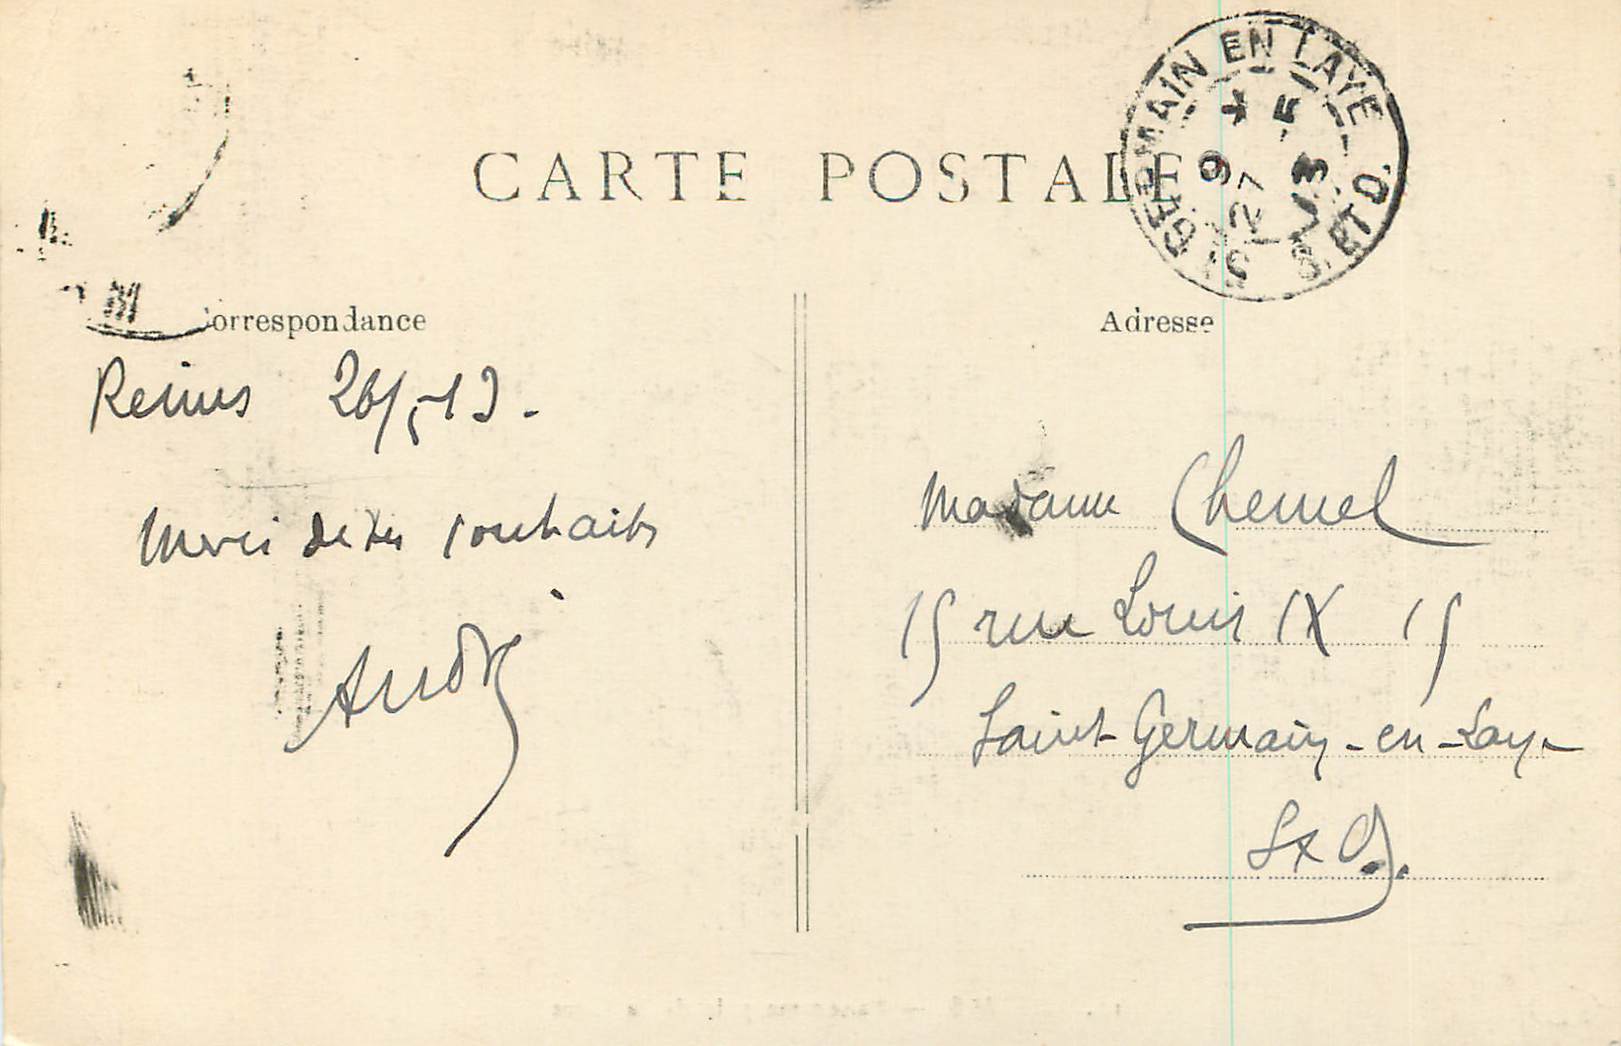 CARTE POSTALE
ST GERMAIN EN LAYE
S. ET O.
9 * 27 -5 13
Correspondance
Adresse
Reims 26/5-13.
Merci de tes souhaits
André
Madame Chemel
15 rue Louis IX 15
Saint-Germain-en-Laye
S & O.